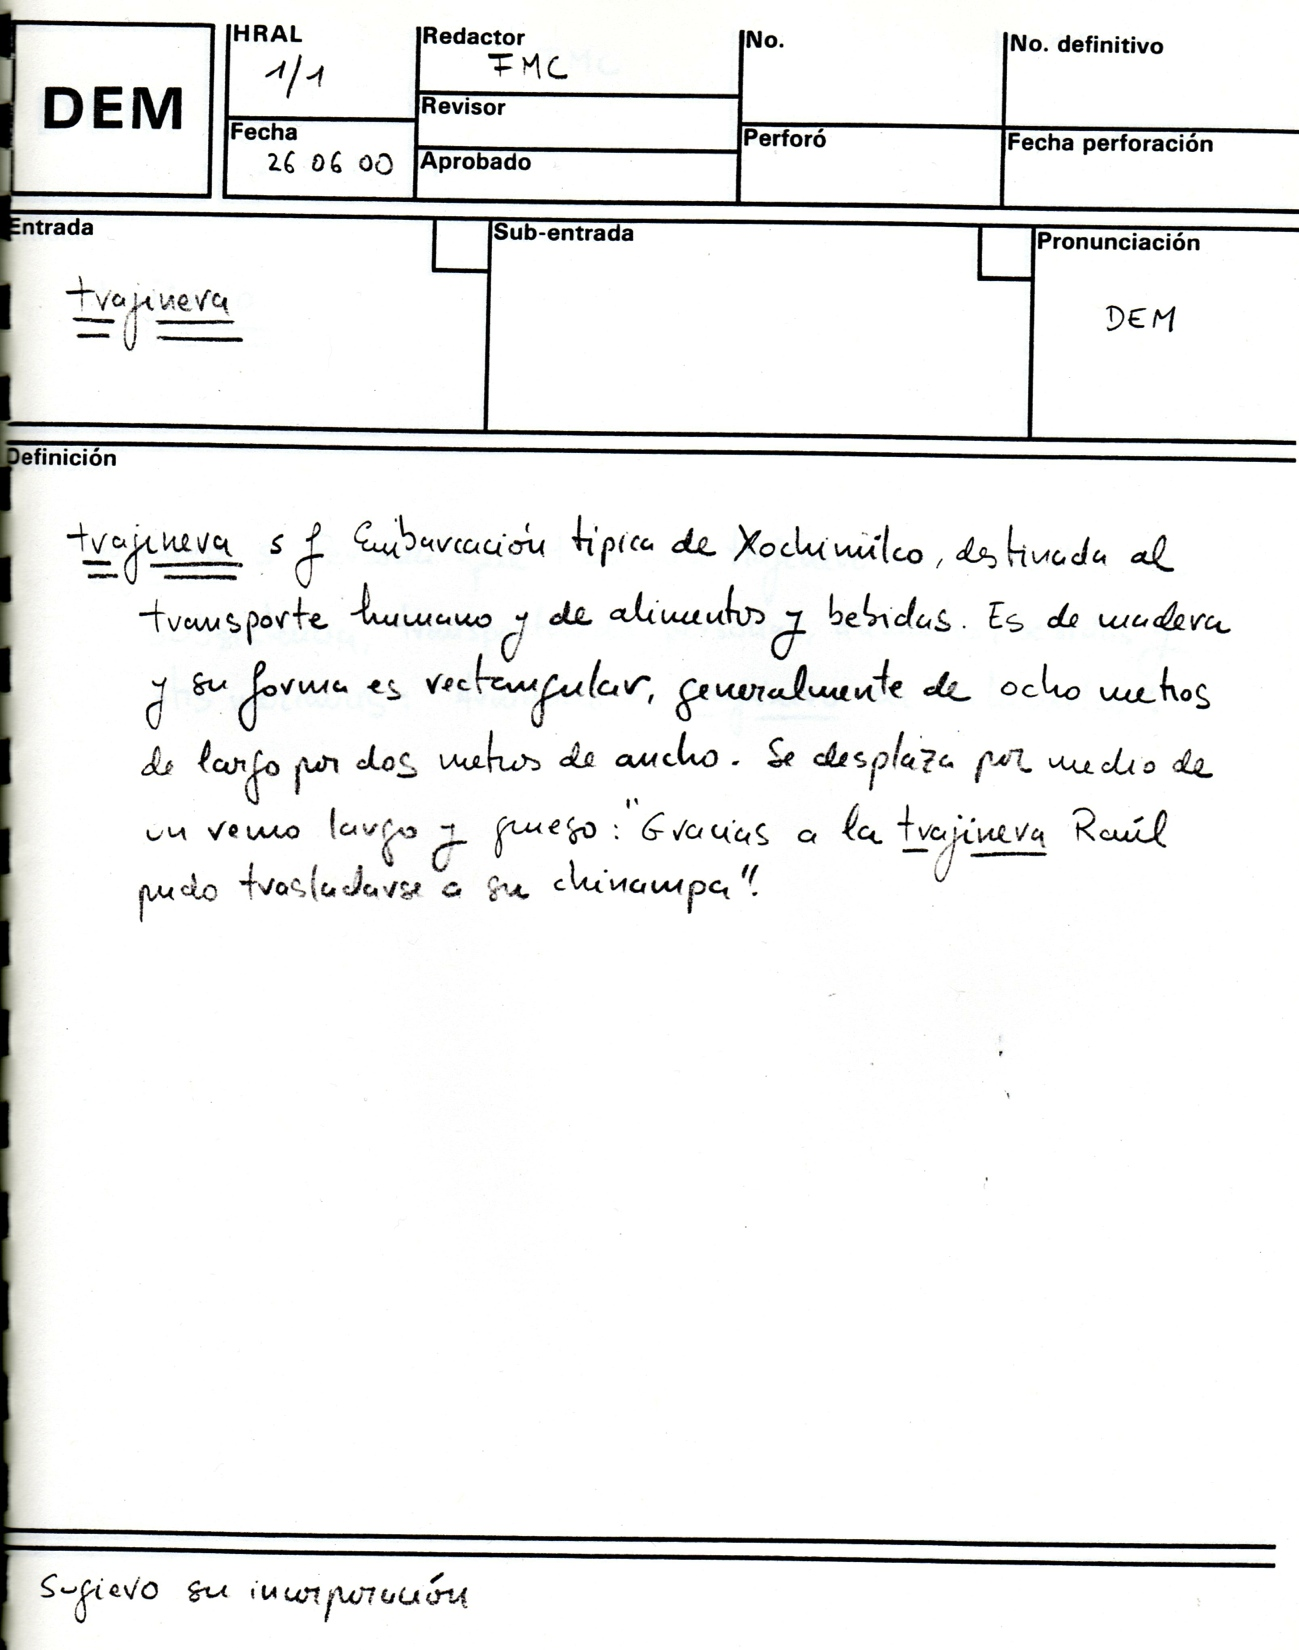 DEM
HRAL
1/1
Fecha
26 06 00
Redactor
FMC
Revisor
Aprobado
No.
Perforó
No. definitivo
Fecha perforación
Entrada
trajinera
Sub-entrada
Pronunciación
DEM
Definición
trajinera s f Embarcación típica de Xochimilco, destinada al
transporte humano y de alimentos y bebidas. Es de madera
y su forma es rectangular, generalmente de ocho metros
de largo por dos metros de ancho. Se desplaza por medio de
un remo largo y grueso: "Gracias a la trajinera Raúl
pudo trasladarse a su chinampa".
Sugiero su incorporación